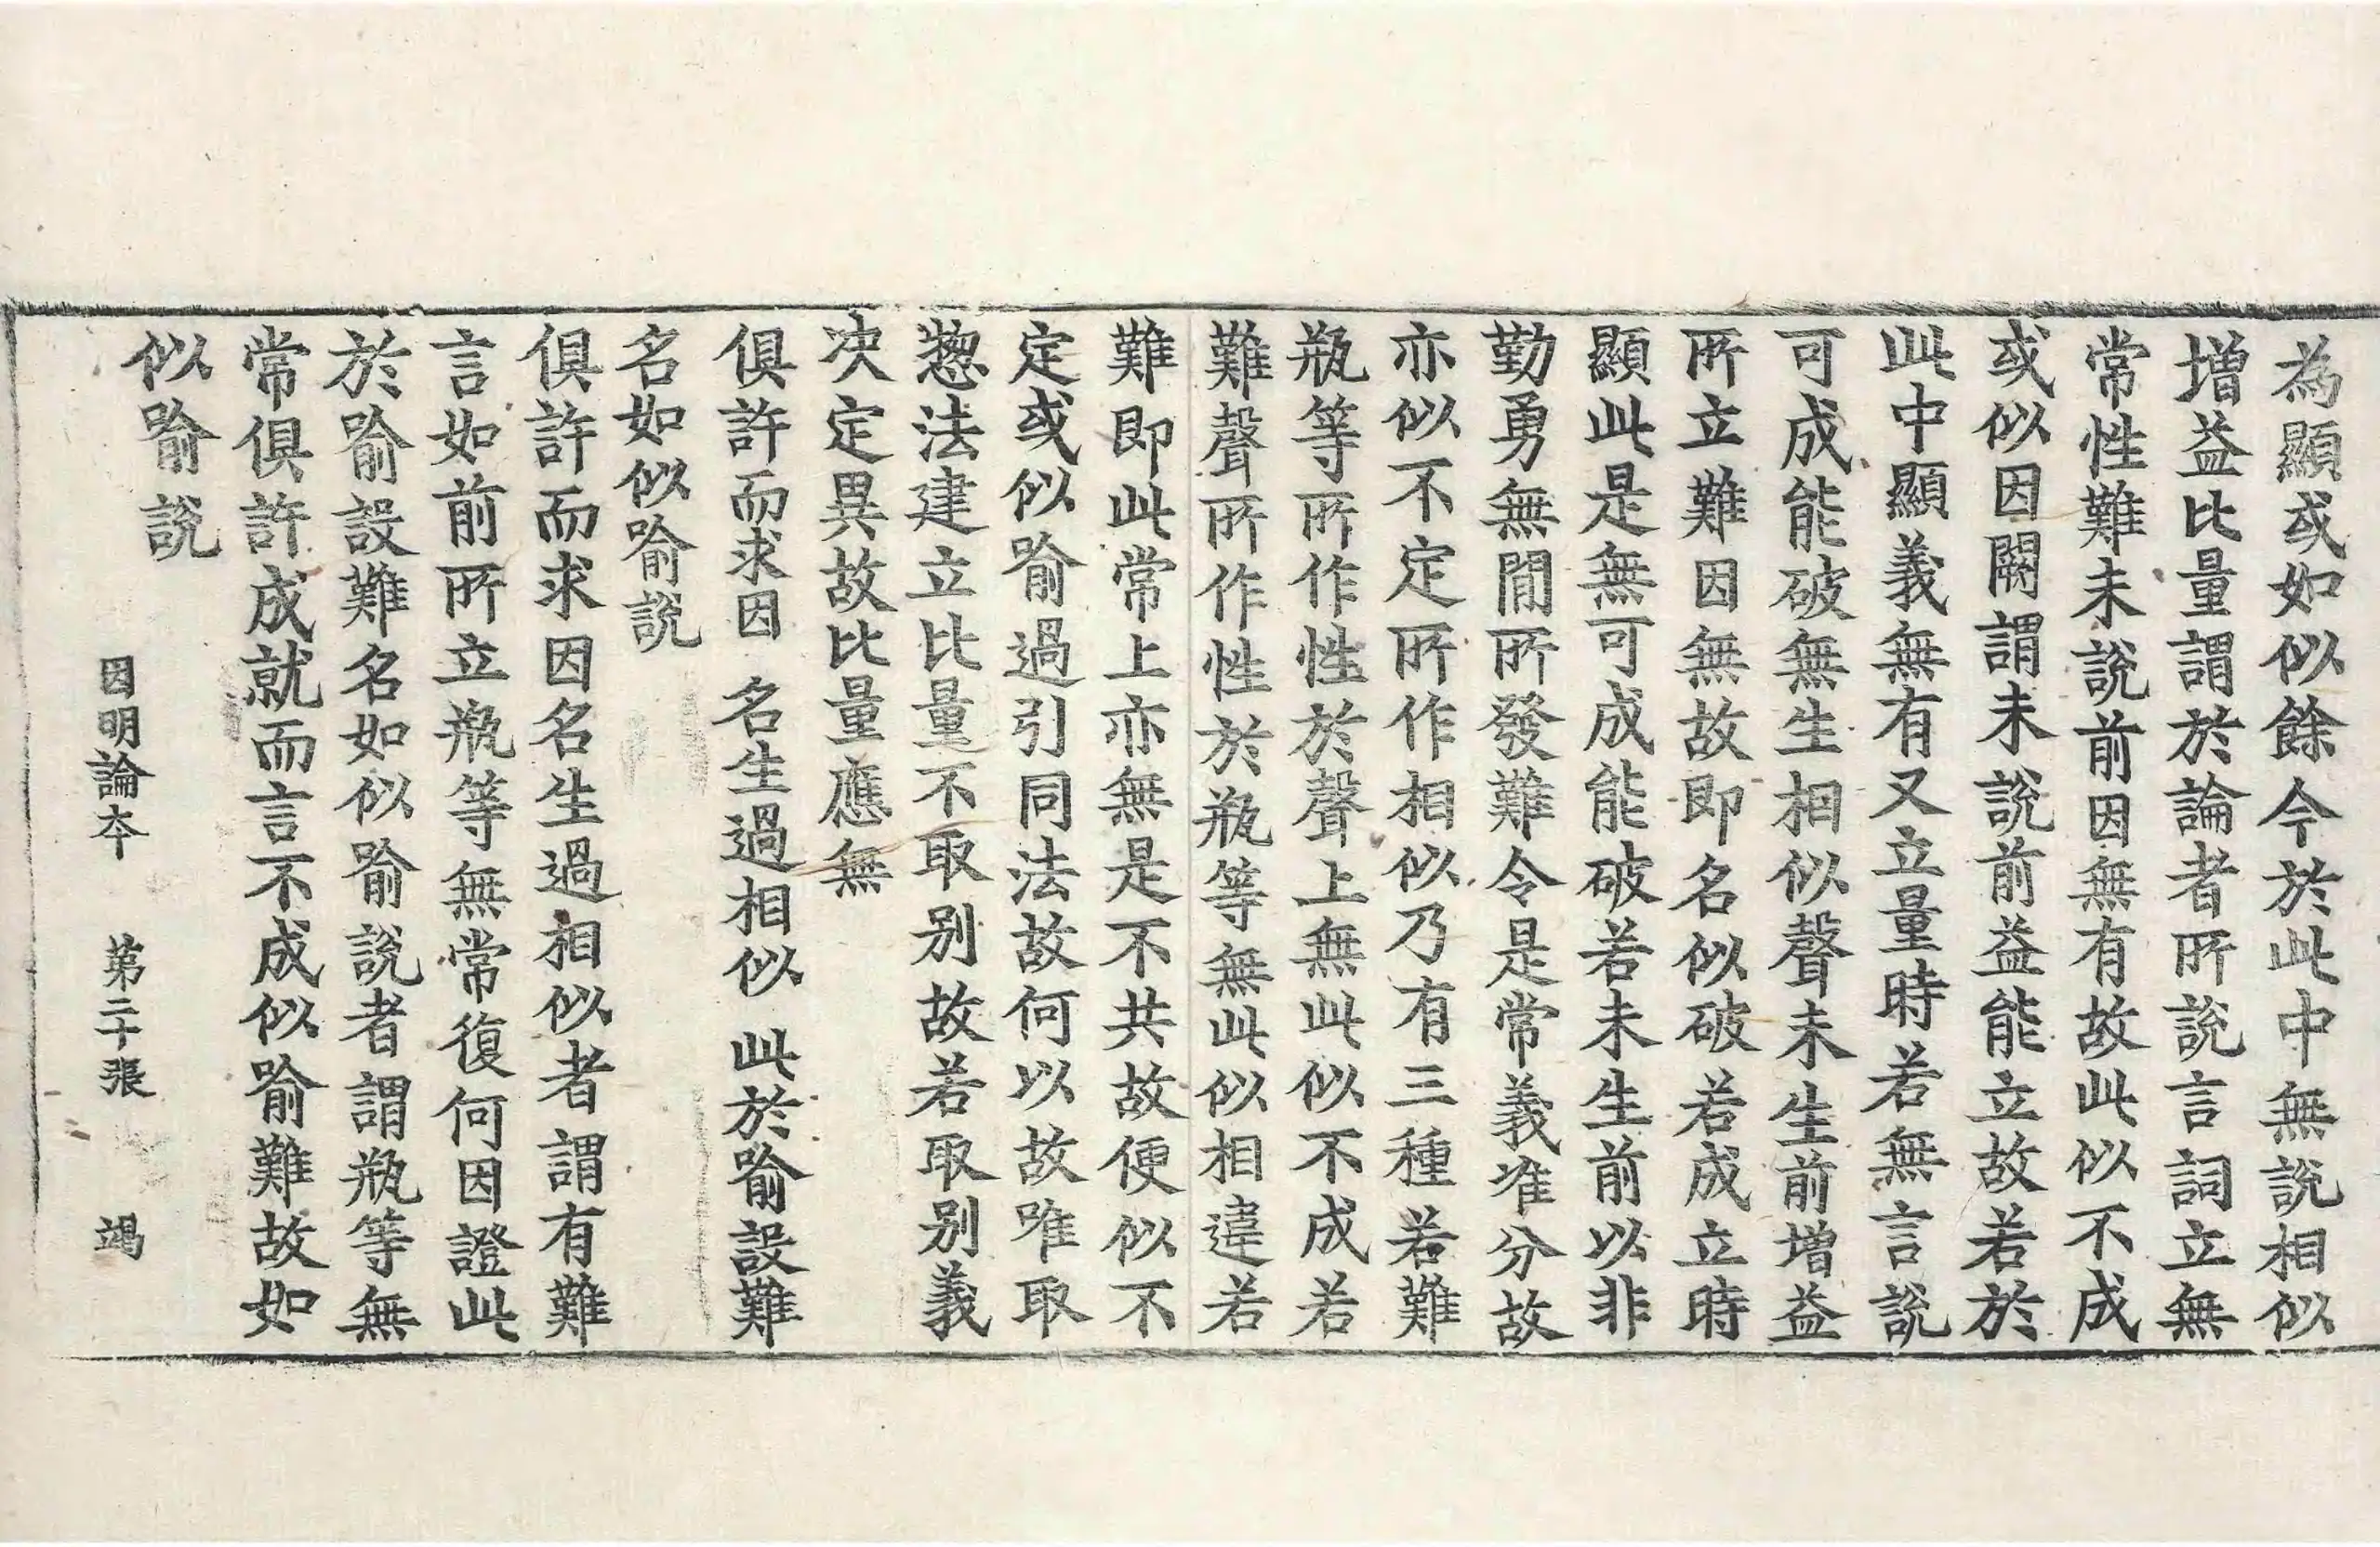 為顯或如似餘今於此中無說相似
增益比量謂於論者所說言詞立無
常性難未說前因無有故此似不成
或似因闕謂未說前益能立故若於
此中顯義無有又立量時若無言說
可成能破無生相似聲未生前增益
所立難因無故即名似破若成立時
顯此是無可成能破若未生前以非
勤勇無間所發難令是常義准分故
亦似不定所作相似乃有三種若難
瓶等所作性於聲上無此似不成若
難聲所作性於瓶等無此似相違若
難即此常上亦無是不共故便似不
定或似喻過引同法故何以故唯取
惣法建立比量不取别故若取别義
决定異故比量應無
俱許而求因 名生過相似 此於喻設難
名如似喻說
俱許而求因名生過相似者謂有難
言如前所立瓶等無常復何因證此
於喻設難名如似喻說者謂瓶等無
常俱許成就而言不成似喻難故如
似喻說
因明論夲 第二十張 竭